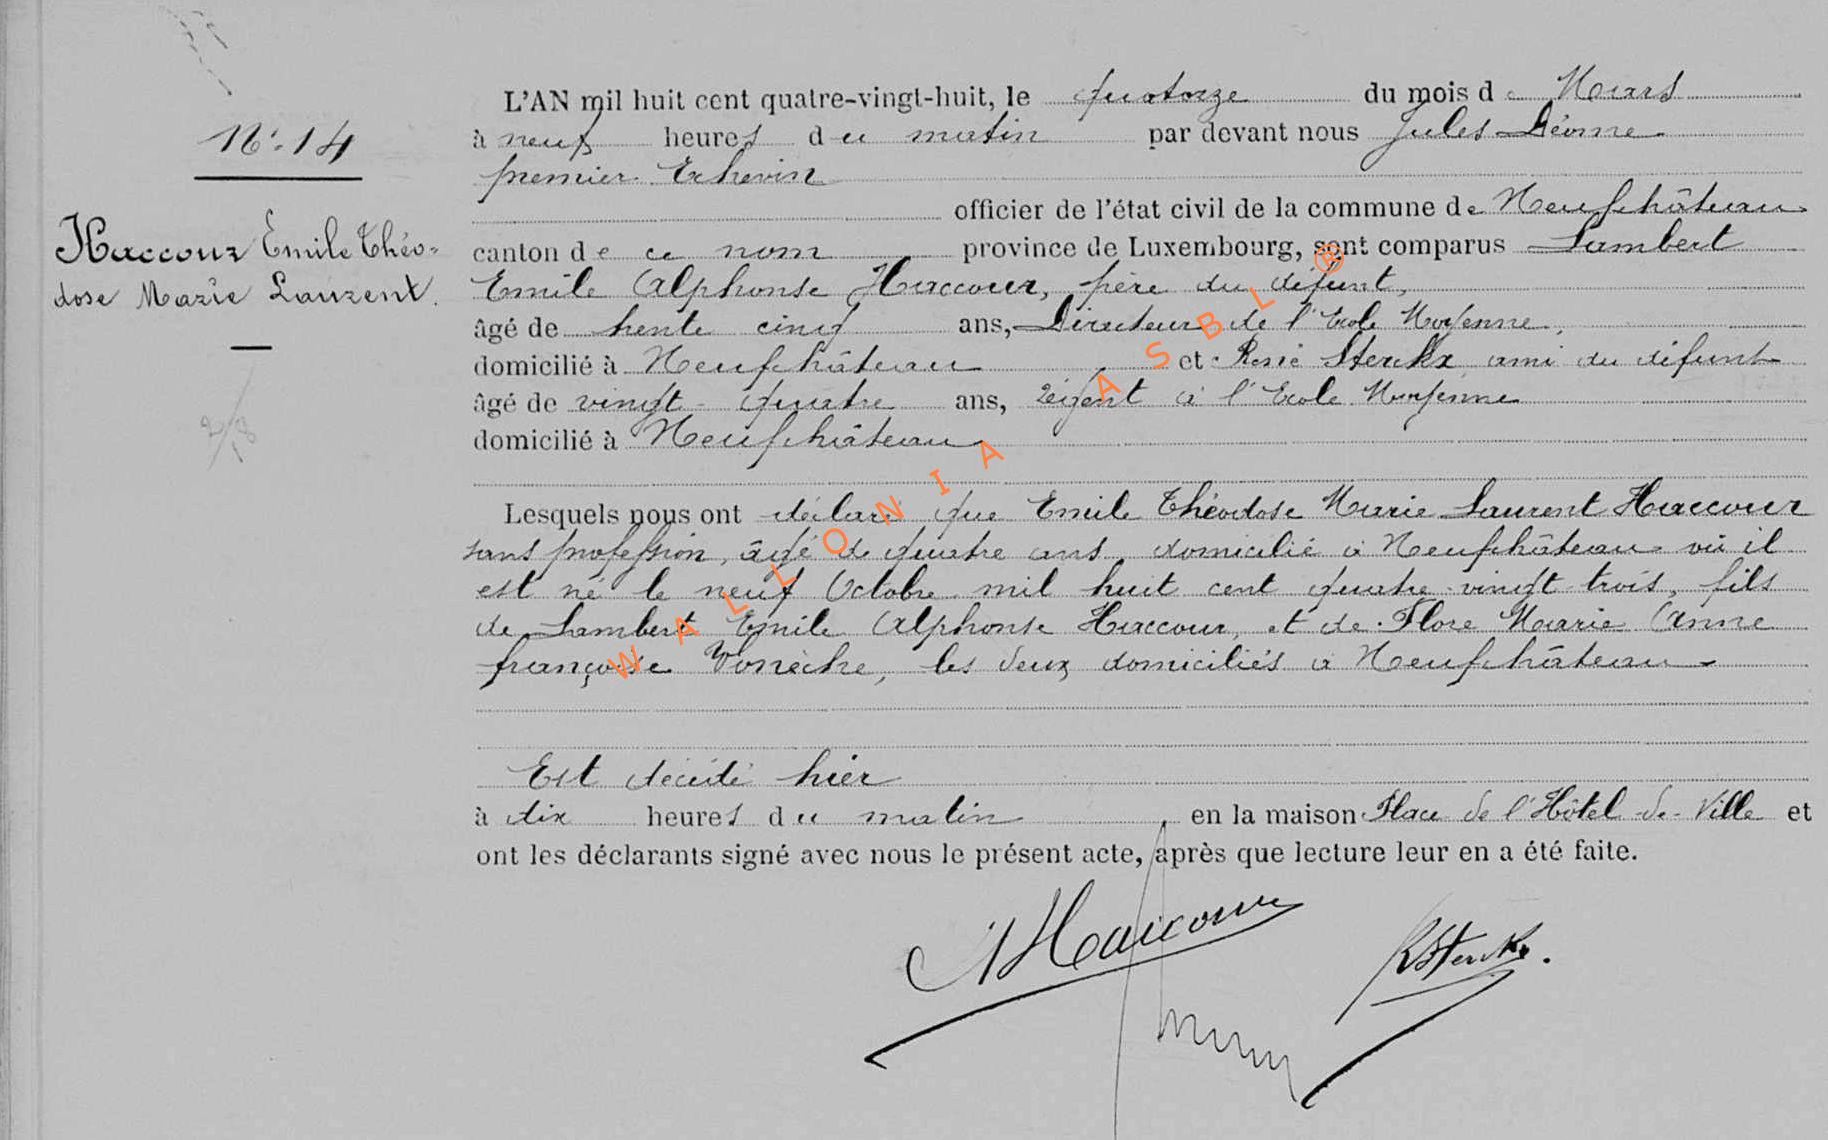 L'AN mil huit cent quatre-vingt-huit, le quatorze du mois de Mars
N°: 14
à neuf heures du matin par devant nous Jules Déome
premier Echevin
officier de l'état civil de la commune de Neufchâteau
Haccour Emile Théo-
dose Marie Laurent.
canton de ce nom province de Luxembourg, sont comparus Lambert
Emile Alphonse Haccour, père du défunt,
âgé de trente cinq ans, Directeur de l'Ecole Moyenne,
domicilié à Neufchâteau et René Sterckx ami du défunt
âgé de vingt-quatre ans, régent à l'Ecole Moyenne
domicilié à Neufchâteau
Lesquels nous ont déclaré que Emile Théodose Marie Laurent Haccour
sans profession, âgé de quatre ans, domicilié à Neufchâteau où il
est né le neuf Octobre mil huit cent quatre-vingt-trois, fils
de Lambert Emile Alphonse Haccour, et de Flore Marie Anne
françoise Vonèche, les deux domiciliés à Neufchâteau
Est décédé hier
à dix heures du matin en la maison Place de l'Hôtel-de-Ville et
ont les déclarants signé avec nous le présent acte, après que lecture leur en a été faite.
AHaccour
RSterckx.
WALLONIA ASBL ®